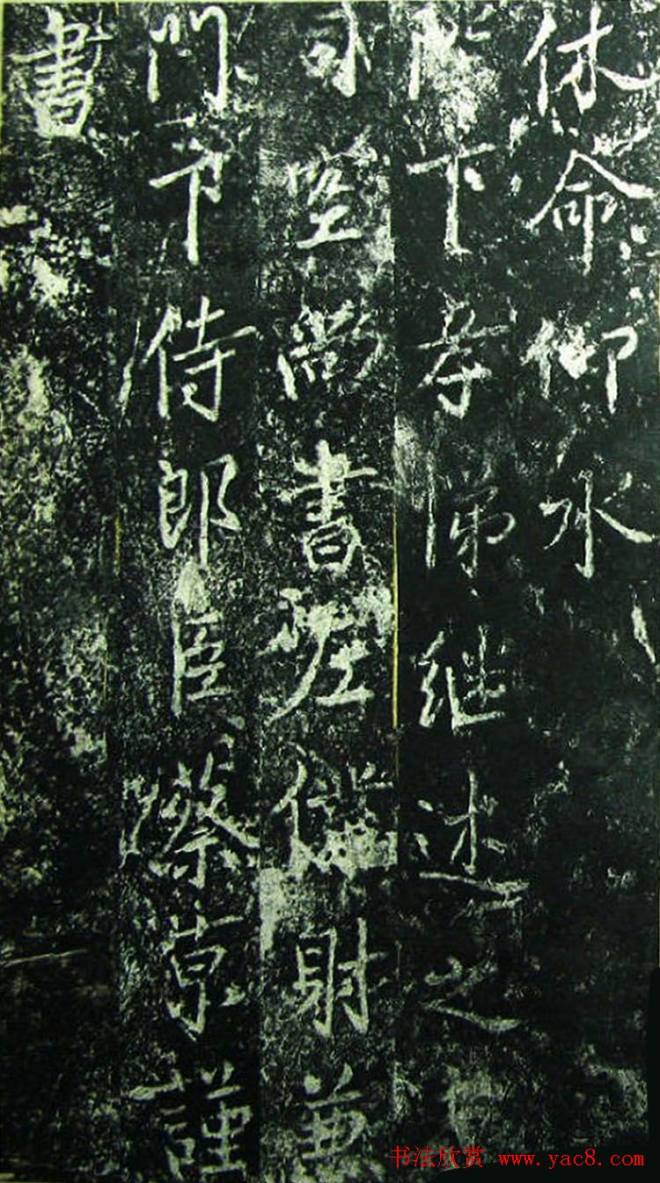 休命仰承
陛下孝悌繼述之
司空尚書左僕射兼
門下侍郎臣蔡京謹
書
书法欣赏 www.yac8.com